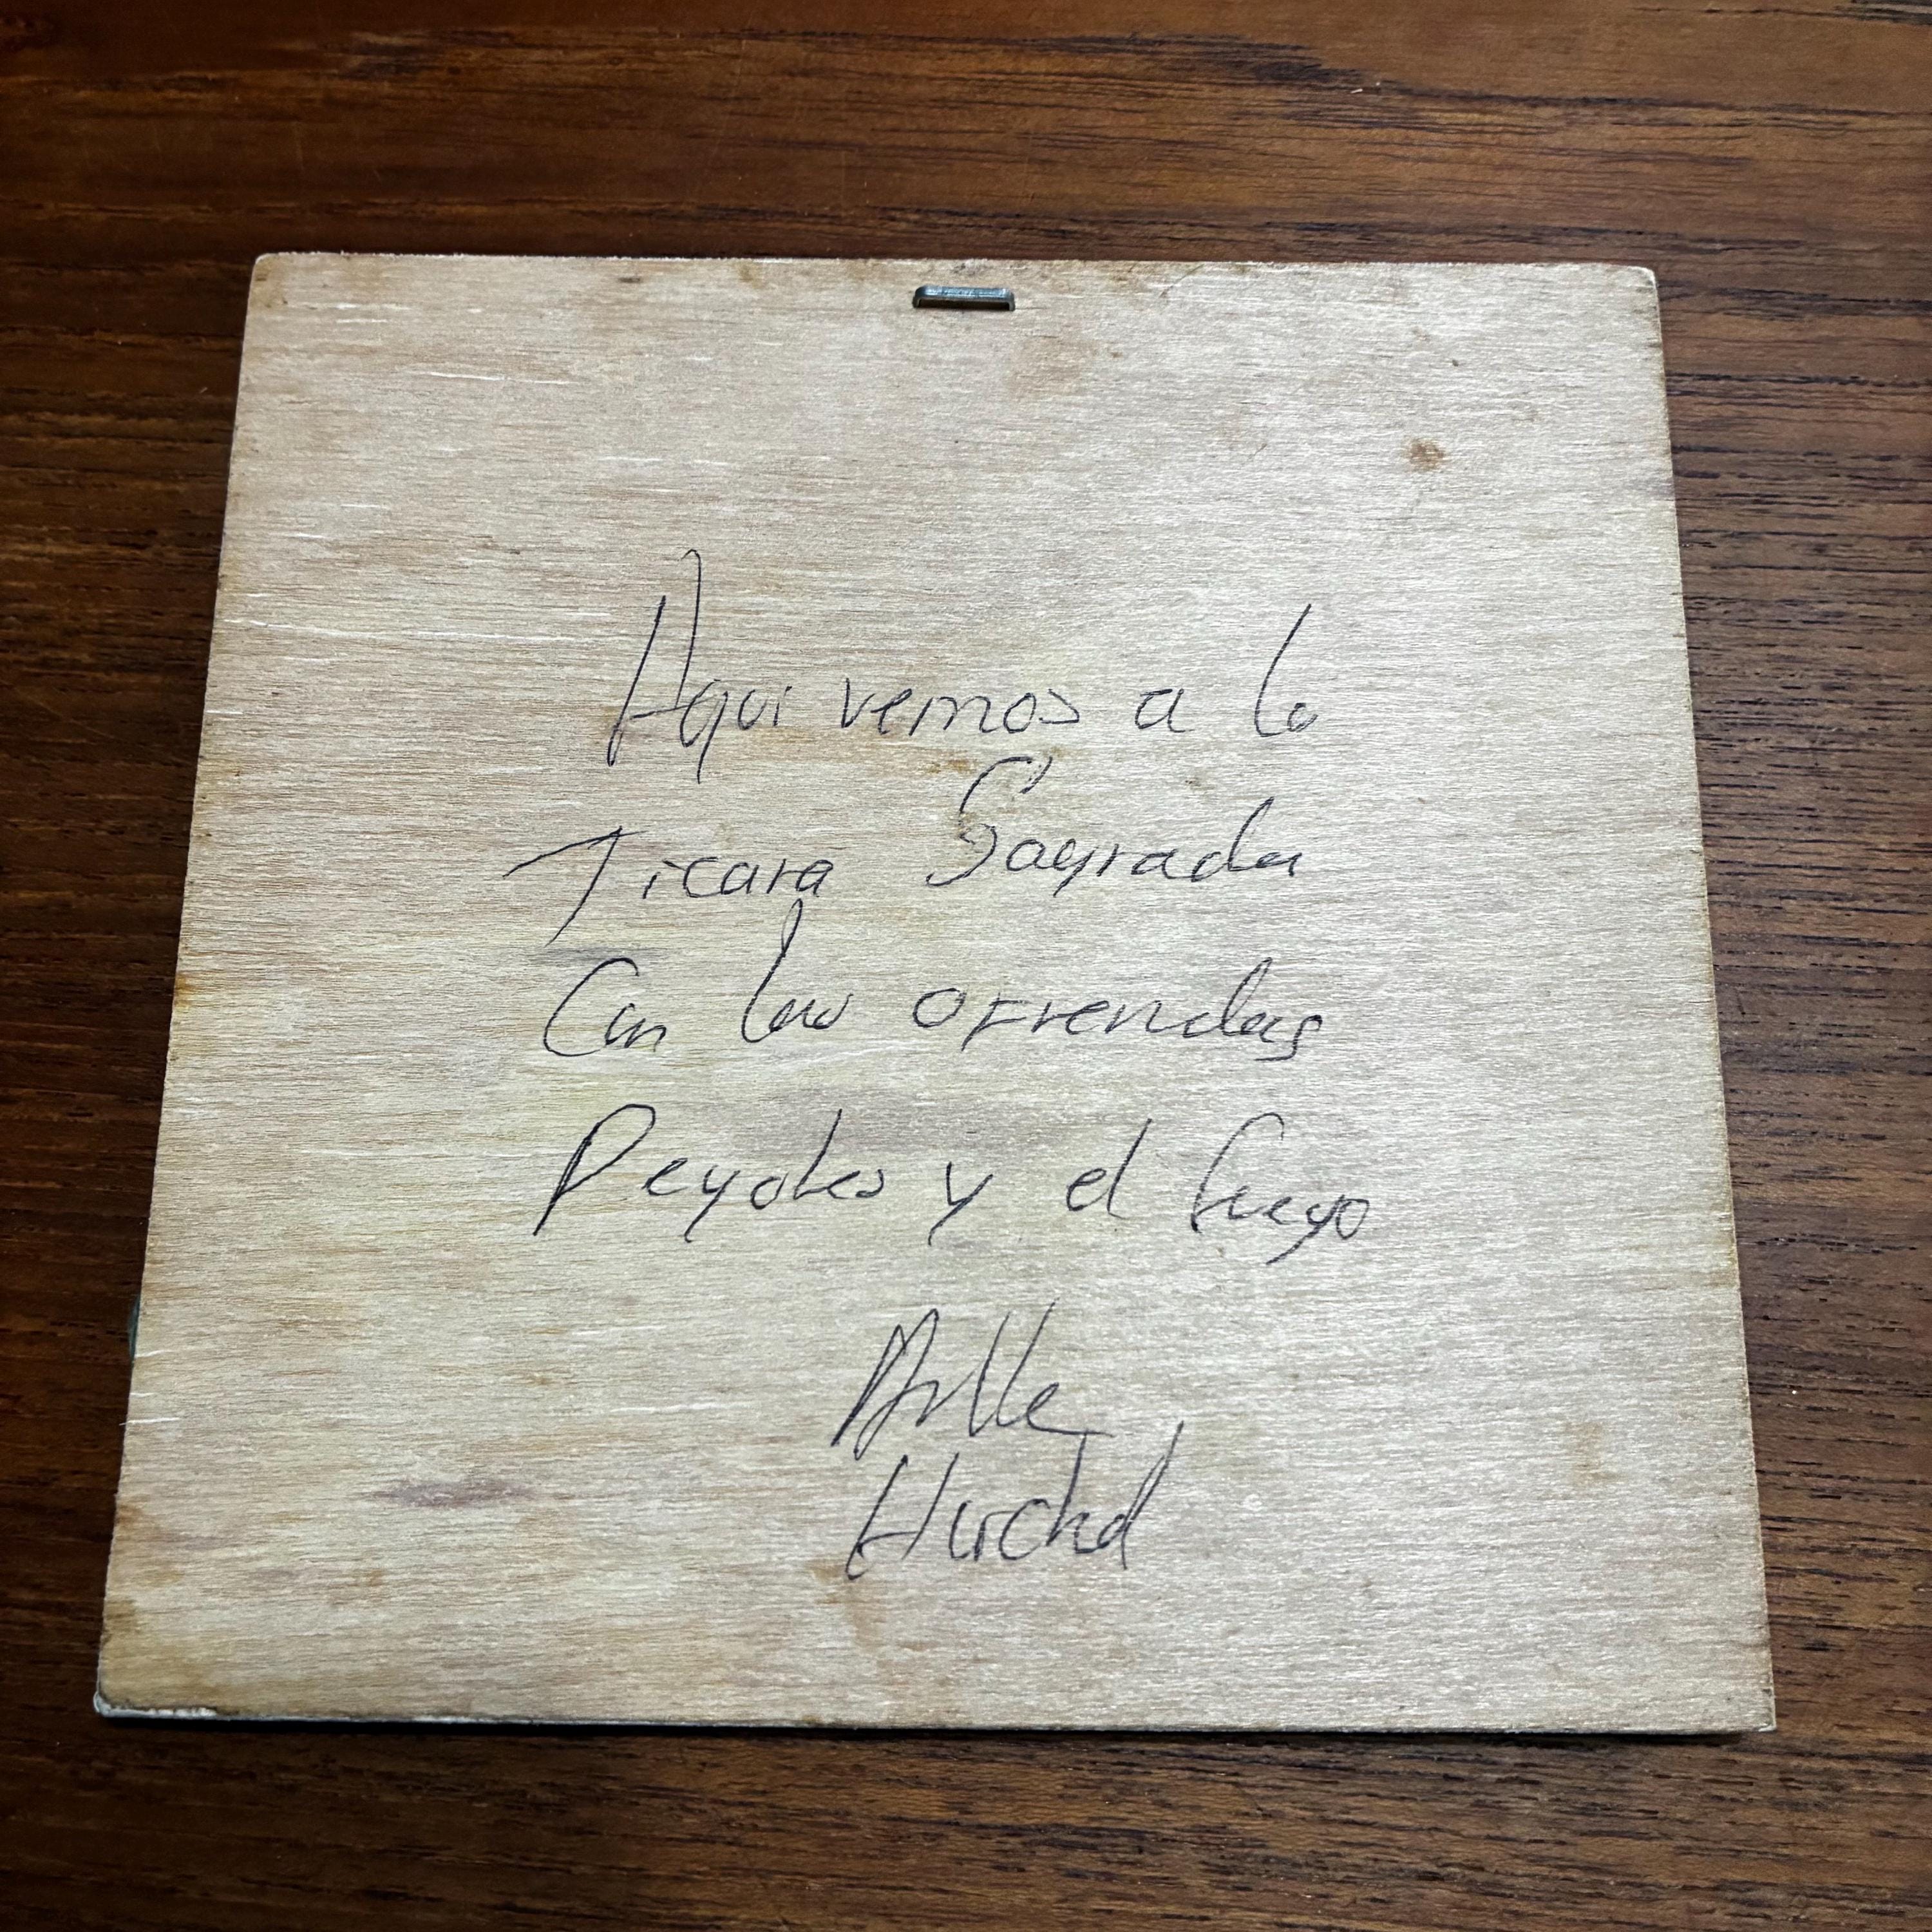 Aqui vemos a la
Jicara Sagrada
Con las ofrendas
Peyotes y el fuego